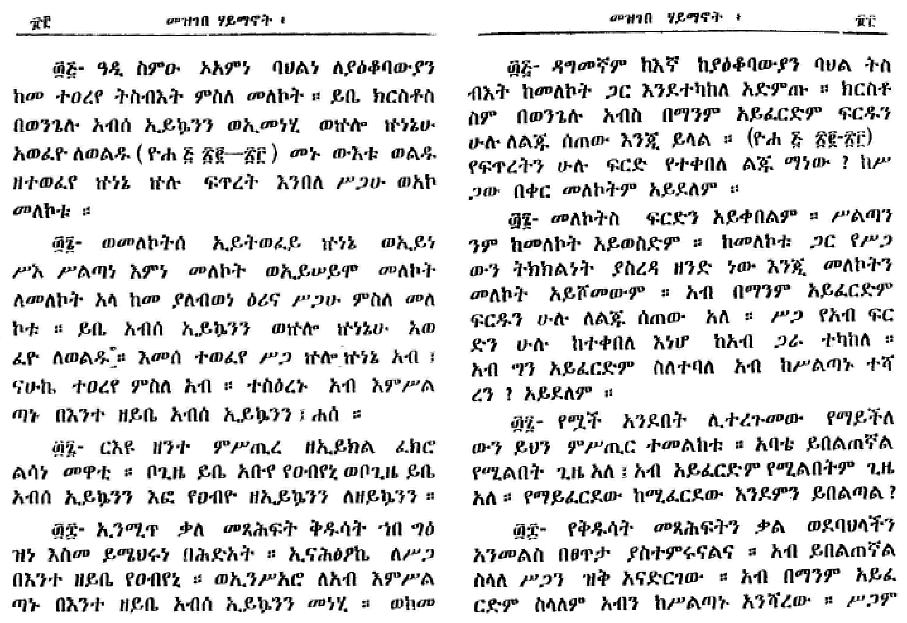 ፷፪ መዝገበ ሃይማኖት ፤
፴፭- ዓዲ ስምዑ ኦአምነ ባህልነ ለያዕቆባውያን
ከመ ተዐረየ ትስብእት ምስለ መለኮት ። ይቤ ክርስቶስ
በወንጌሉ አብሰ ኢይኴንን ወኢመነሂ ወኵሎ ኵነኔሁ
አወፈዮ ለወልዱ ( ዮሐ ፭ ፳፪—፳፫ ) መኑ ውእቱ ወልዱ
ዘተወፈየ ኵነኔ ኵሉ ፍጥረት እንበለ ሥጋሁ ወአኮ
መለኮቱ ።
፴፮- ወመለኮትሰ ኢይትወፈይ ኵነኔ ወኢይነ
ሥእ ሥልጣነ እምነ መለኮት ወኢይሠይሞ መለኮት
ለመለኮት አላ ከመ ያለብወነ ዕሪና ሥጋሁ ምስለ መለ
ኮቱ ። ይቤ አብሰ ኢይኴንን ወኵሎ ኵነኔሁ አወ
ፈዮ ለወልዱ ። እመሰ ተወፈየ ሥጋ ኵሎ ኵነኔ አብ ፤
ናሁኬ ተዐረየ ምስለ አብ ። ተስዕረኑ አብ እምሥል
ጣኑ በእንተ ዘይቤ አብሰ ኢይኴንን ፤ ሐሰ ።
፴፯- ርእዩ ዘንተ ምሥጢረ ዘኢይክል ፈክሮ
ልሳነ መዋቲ ። ቦጊዜ ይቤ አቡየ የዐብየኒ ወቦጊዜ ይቤ
አብሰ ኢይኴንን እፎ የዐብዮ ዘኢይኴንን ለዘይኴንን ።
፴፰- ኢንሚጥ ቃለ መጻሕፍት ቅዱሳት ኀበ ግዕ
ዝነ እስመ ይሜህሩነ በሕድአት ። ኢናሕፅፆኬ ለሥጋ
በእንተ ዘይቤ የዐብየኒ ። ወኢንሥአሮ ለአብ እምሥል
ጣኑ በእንተ ዘይቤ አብሰ ኢይኴንን መነሂ ። ወከመ
መዝገበ ሃይማኖት ፤ ፷፫
፴፭- ዳግመኛም ከእኛ ከያዕቆባውያን ባህል ትስ
ብእት ከመለኮት ጋር እንደተካከለ አድምጡ ። ክርስቶ
ስም በወንጌሉ አብስ በማንም አይፈርድም ፍርዱን
ሁሉ ለልጁ ሰጠው እንጂ ይላል ። (ዮሐ ፭ ፳፪-፳፫)
የፍጥረትን ሁሉ ፍርድ የተቀበለ ልጁ ማነው ? ከሥ
ጋው በቀር መለኮትም አይደለም ።
፴፮- መለኮትስ ፍርድን አይቀበልም ። ሥልጣን
ንም ከመለኮት አይወስድም ። ከመለኮቱ ጋር የሥጋ
ውን ትክክልነት ያስረዳ ዘንድ ነው እንጂ መለኮትን
መለኮት አይሾመውም ። አብ በማንም አይፈርድም
ፍርዱን ሁሉ ለልጁ ሰጠው አለ ። ሥጋ የአብ ፍር
ድን ሁሉ ከተቀበለ እነሆ ከአብ ጋራ ተካከለ ።
አብ ግን አይፈርድም ስለተባለ አብ ከሥልጣኑ ተሻ
ረን ? አይደለም ።
፴፯- የሟች አንደበት ሊተረጉመው የማይችለ
ውን ይህን ምሥጢር ተመልከቱ ። አባቴ ይበልጠኛል
የሚልበት ጊዜ አለ ፤ አብ አይፈርድም የሚልበትም ጊዜ
አለ ። የማይፈርደው ከሚፈርደው እንደምን ይበልጣል ?
፴፰- የቅዱሳት መጻሕፍትን ቃል ወደባህላችን
አንመልስ በፀጥታ ያስተምሩናልና ። አብ ይበልጠኛል
ስላለ ሥጋን ዝቅ አናድርገው ። አብ በማንም አይፈ
ርድም ስላለም አብን ከሥልጣኑ አንሻረው ። ሥጋም